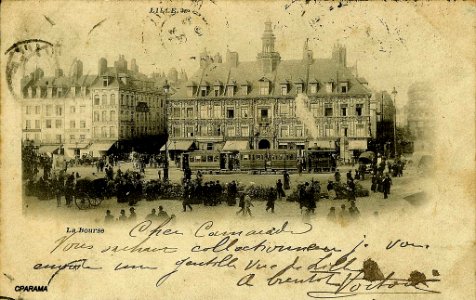 LILLE
La Bourse
Cher Camarade
Vous sachant collectionneur je vous
envoie une gentille vue de Lille
A bientôt
CPARAMA